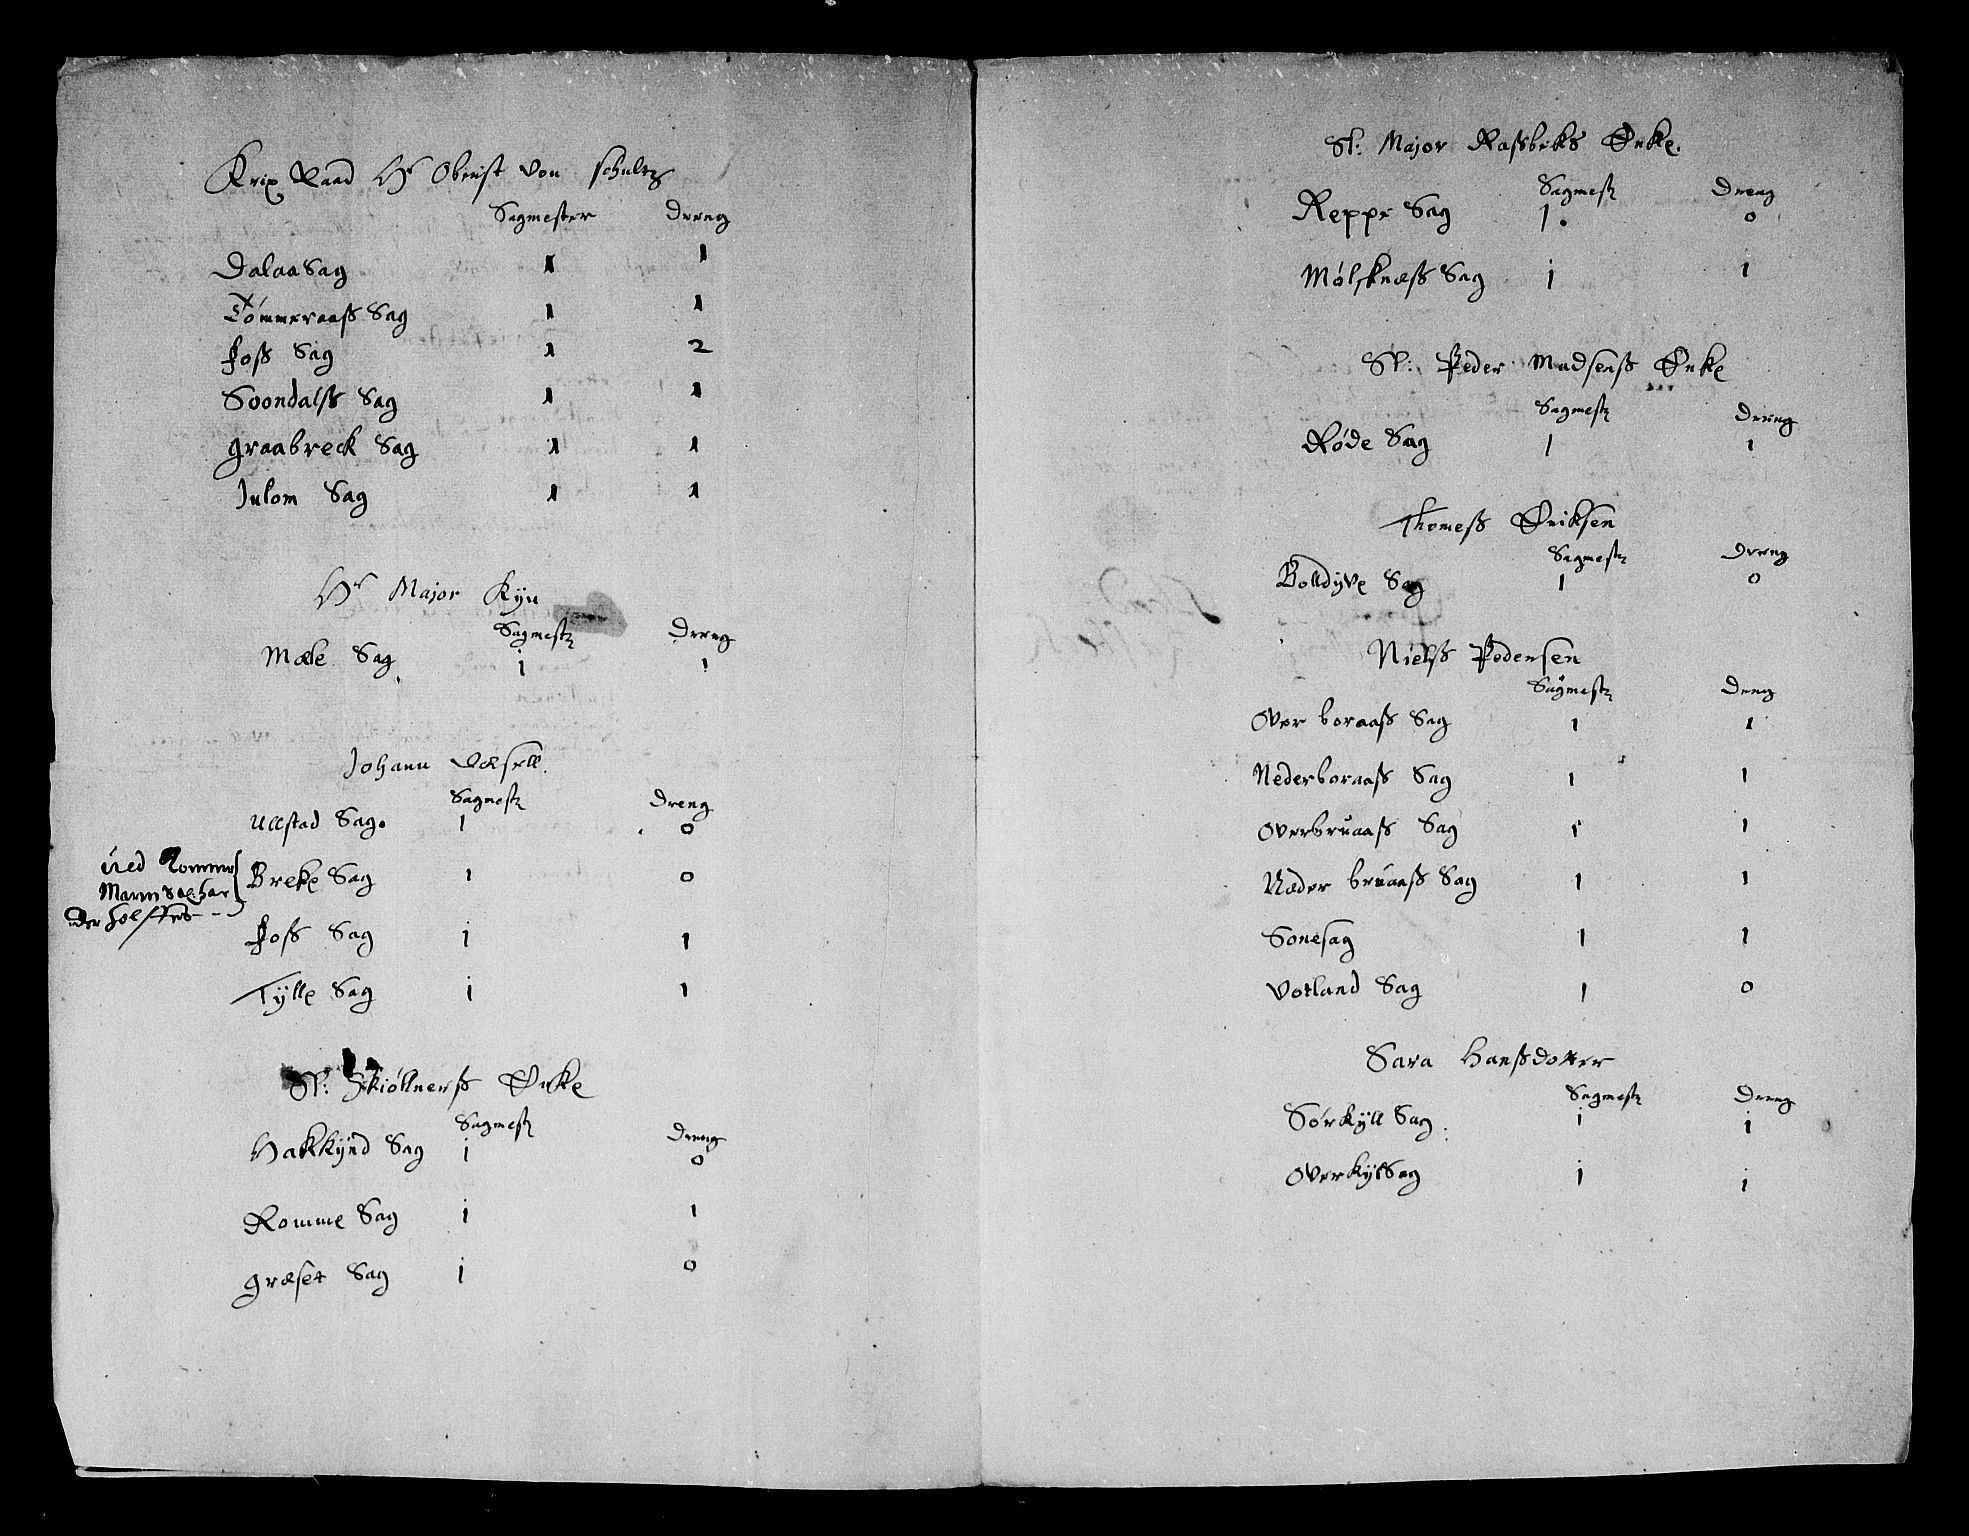 Krix Raad Hr Oberist von Schultz
Sagmester Dreng
Dalaa Sag 1 1
Tømmeraass Sag 1 1
foss Sag 1 2
Svondalss Sag 1 1
graabreck Sag 1 1
Julom Sag 1 1
Hr Major Kyn
Sagmestr Dreng
Mæle Sag 1 1
Johann
Sagmestr Dreng
Ullstad Sag. 1 0
Breke Sag 1 0
foss Sag i 1
Tÿlle Sag i 1
Sl: Skiøllnerss Enke
Sagmestr Dreng
Hakkÿnd Sag i 0
Romme Sag i 1
græset Sag i 0
Sl: Major Rassbeks Enke.
Sagmestr Dreng
Reppe Sag 1. 0
Mølsknæss Sag i 1
Sl: Peder Madsenss Enke
Sagmestr Dreng
Røde Sag 1 1
Thomess Eriksen
Sagmestr Dreng
Bolldÿve Sag 1 0
Nielss Pedersen
Sagmestr Dreng
Over boraass Sag 1 1
Nederboraass Sag 1 1
Overbruaass Sag 1 1
Næder bruaass Sag 1 1
Sonesag 1 1
Votland Sag 1 0
Sara Hanssdotter
Sagmestr Dreng
Sørkÿll Sag i i
OverkÿlSag i i